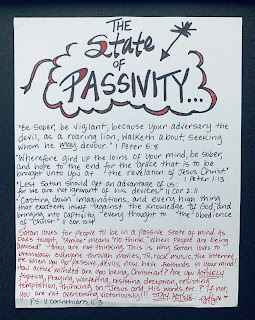 THE
State
of
PASSIVITY...
"Be sober, be vigilant; because your adversary the
devil, as a roaring lion, walketh about, seeking
whom he may devour." 1 Peter 5:8
"Wherefore gird up the loins of your mind, be sober,
and hope to the end for the grace that is to be
brought unto you at the revelation of Jesus Christ"
1 Peter 1:13
"Lest Satan should get an advantage of us:
for we are not ignorant of his devices." II Cor 2:11
"Casting down imaginations, and every high thing
that exalteth itself against the knowledge of God, and
bringing into captivity every thought to the obedience
of Christ" II Cor 10:5
Satan loves for people to be in a passive state of mind. As
Doc's taught, "Amuse" means "no think." When people are being
"amused" they are not thinking. This is why Satan loves to
brainwash everyone through movies, TV, rock music, the internet,
etc. When you go passive, devils now have footholds in your mind!
How active minded are you being, Christian? Are you ACTIVELY
fighting, praying, warfaring, resisting deception, resisting
temptation, thinking on Jesus and His words, etc? If not,
you are not overcoming victoriously!!! STAY ACTIVE
P.S. II Corinthians 11:3